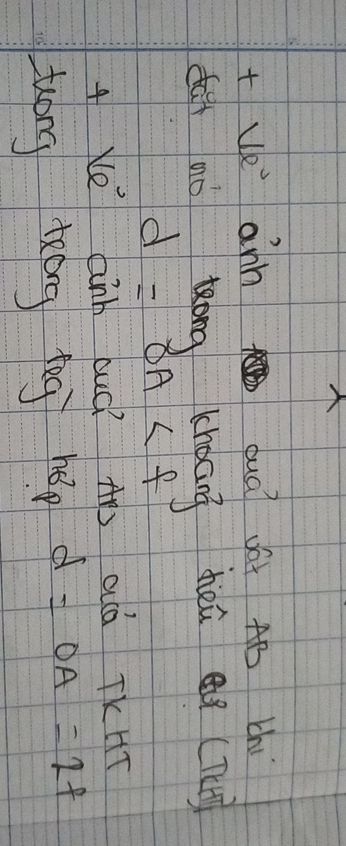 + Vẽ ảnh của vật AB khi
đặt nó trong khoảng tiêu cự (TKHT)
d = OA < f
+ Vẽ ảnh của AB của TKHT
trong trong trg̀ hợp d = OA = 2f